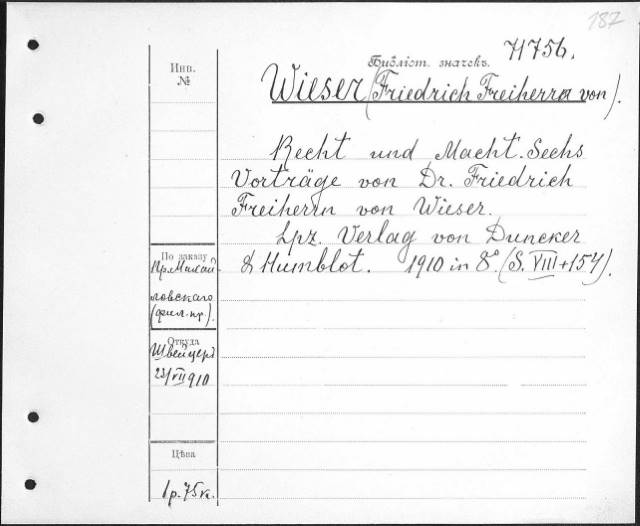 187
Библіот. значекъ. 71756.
Инв.
№
Wieser (Friedrich Freiherrn von).
Recht und Macht. Sechs
Vorträge von Dr. Friedrich
Freiherrn von Wieser.
Lpz. Verlag von Duncker
& Humblot. 1910 in 8° (S. VIII + 154).
По заказу
Пр. Михай
ловскаго
(фил. пр.).
Откуда
Швейцеръ
23/VII 910
Цѣна
1 р. 75 к.